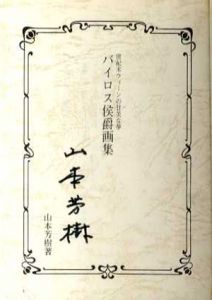 世紀末ウィーンの甘美な夢
バイロス侯爵画集
山本芳樹
山本芳樹著